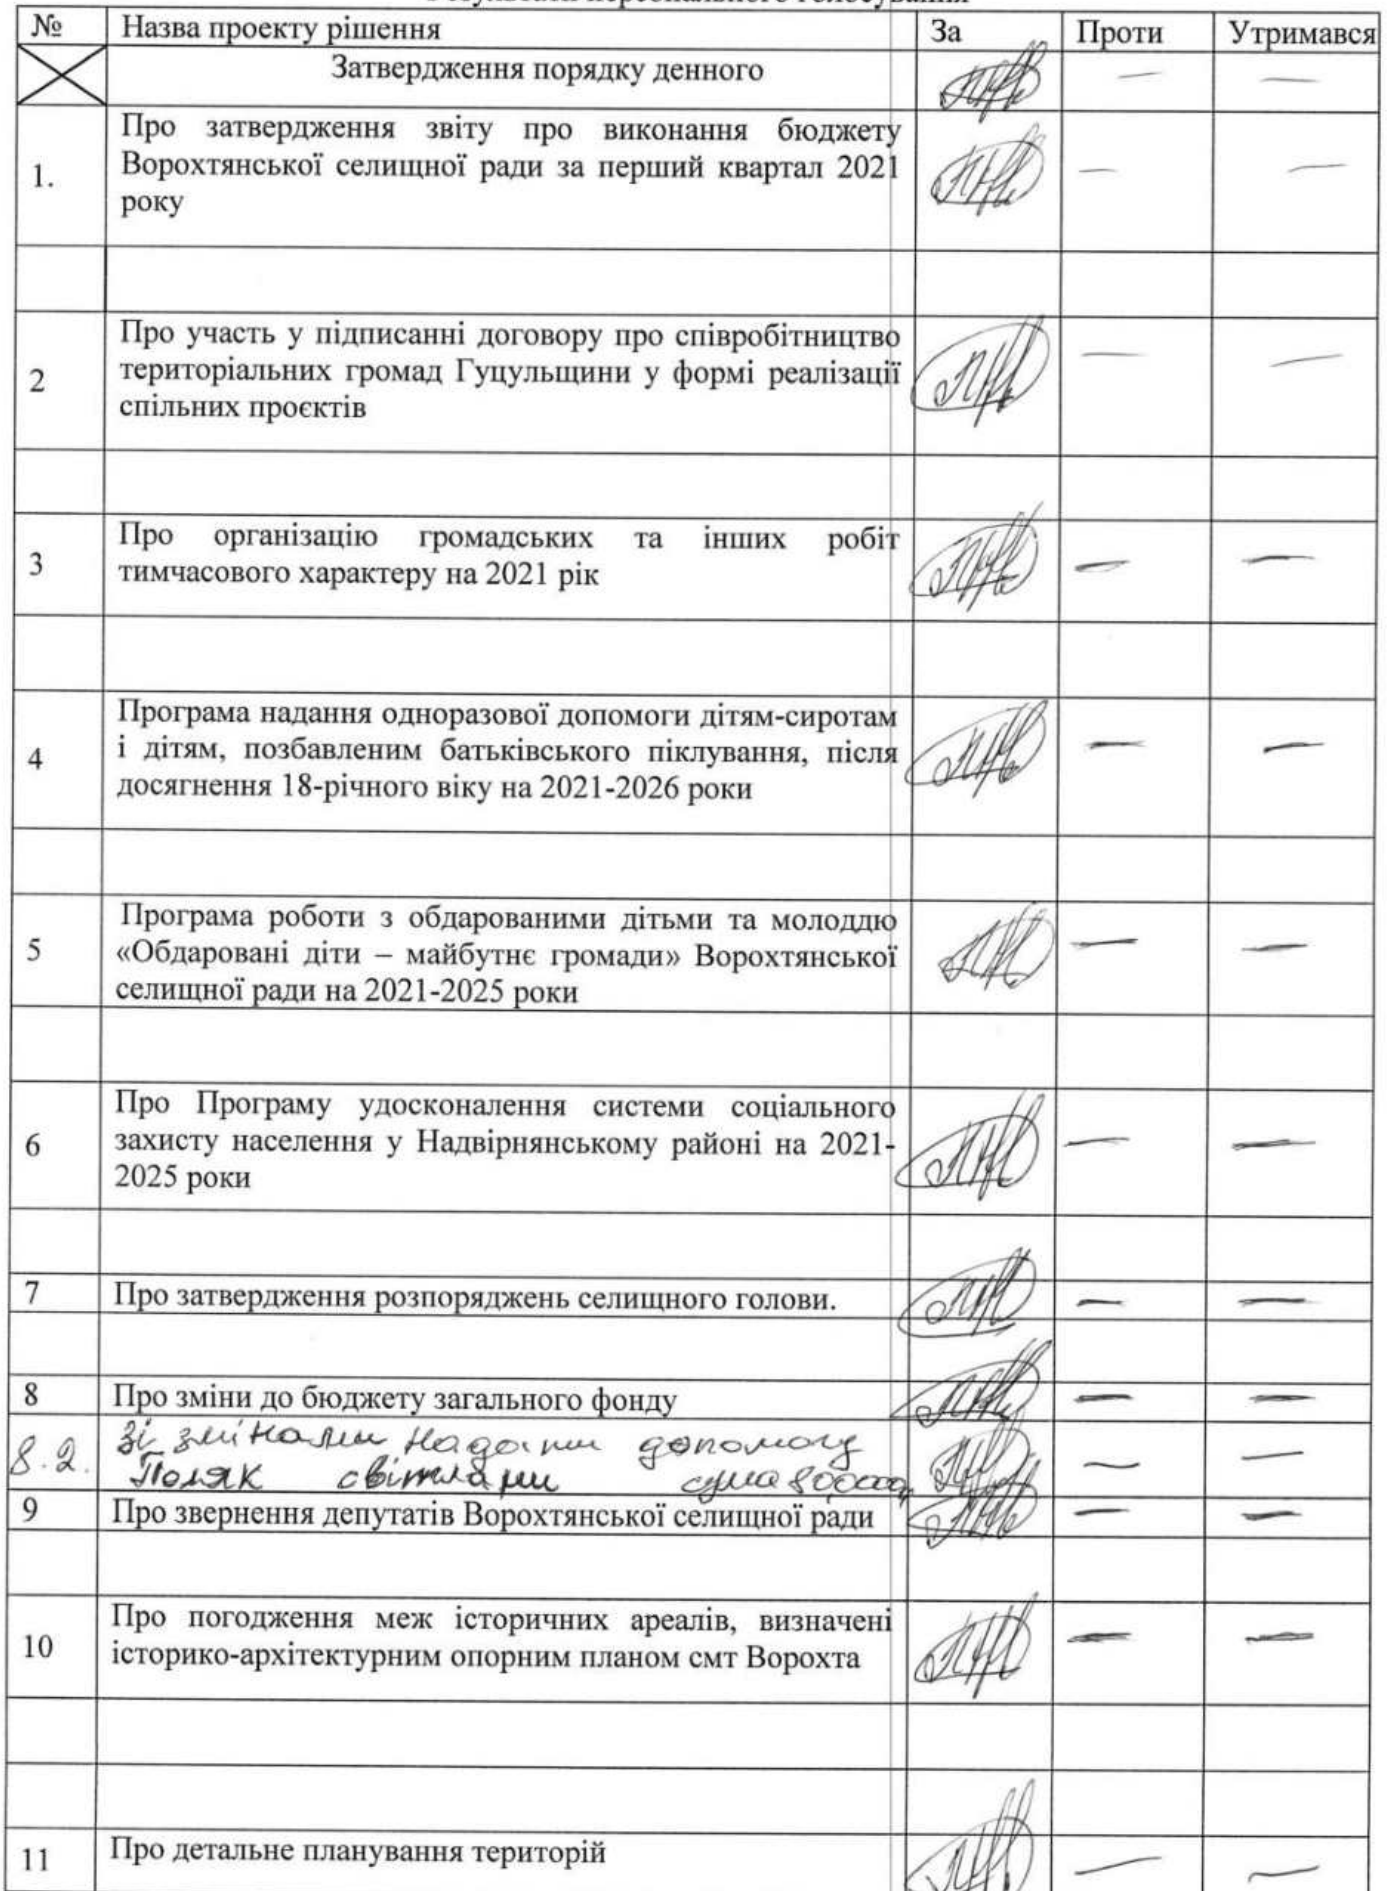 № Назва проекту рішення За Проти Утримався
Затвердження порядку денного — —
1. Про затвердження звіту про виконання бюджету
Ворохтянської селищної ради за перший квартал 2021
року — —
2 Про участь у підписанні договору про співробітництво
територіальних громад Гуцульщини у формі реалізації
спільних проєктів — —
3 Про організацію громадських та інших робіт
тимчасового характеру на 2021 рік — —
4 Програма надання одноразової допомоги дітям-сиротам
і дітям, позбавленим батьківського піклування, після
досягнення 18-річного віку на 2021-2026 роки — —
5 Програма роботи з обдарованими дітьми та молоддю
«Обдаровані діти – майбутнє громади» Ворохтянської
селищної ради на 2021-2025 роки — —
6 Про Програму удосконалення системи соціального
захисту населення у Надвірнянському районі на 2021-
2025 роки — —
7 Про затвердження розпоряджень селищного голови. — —
8 Про зміни до бюджету загального фонду — —
8.2. Зі змінами надати допомогу
Поляк світлани сума — —
9 Про звернення депутатів Ворохтянської селищної ради — —
10 Про погодження меж історичних ареалів, визначені
історико-архітектурним опорним планом смт Ворохта — —
11 Про детальне планування територій — —